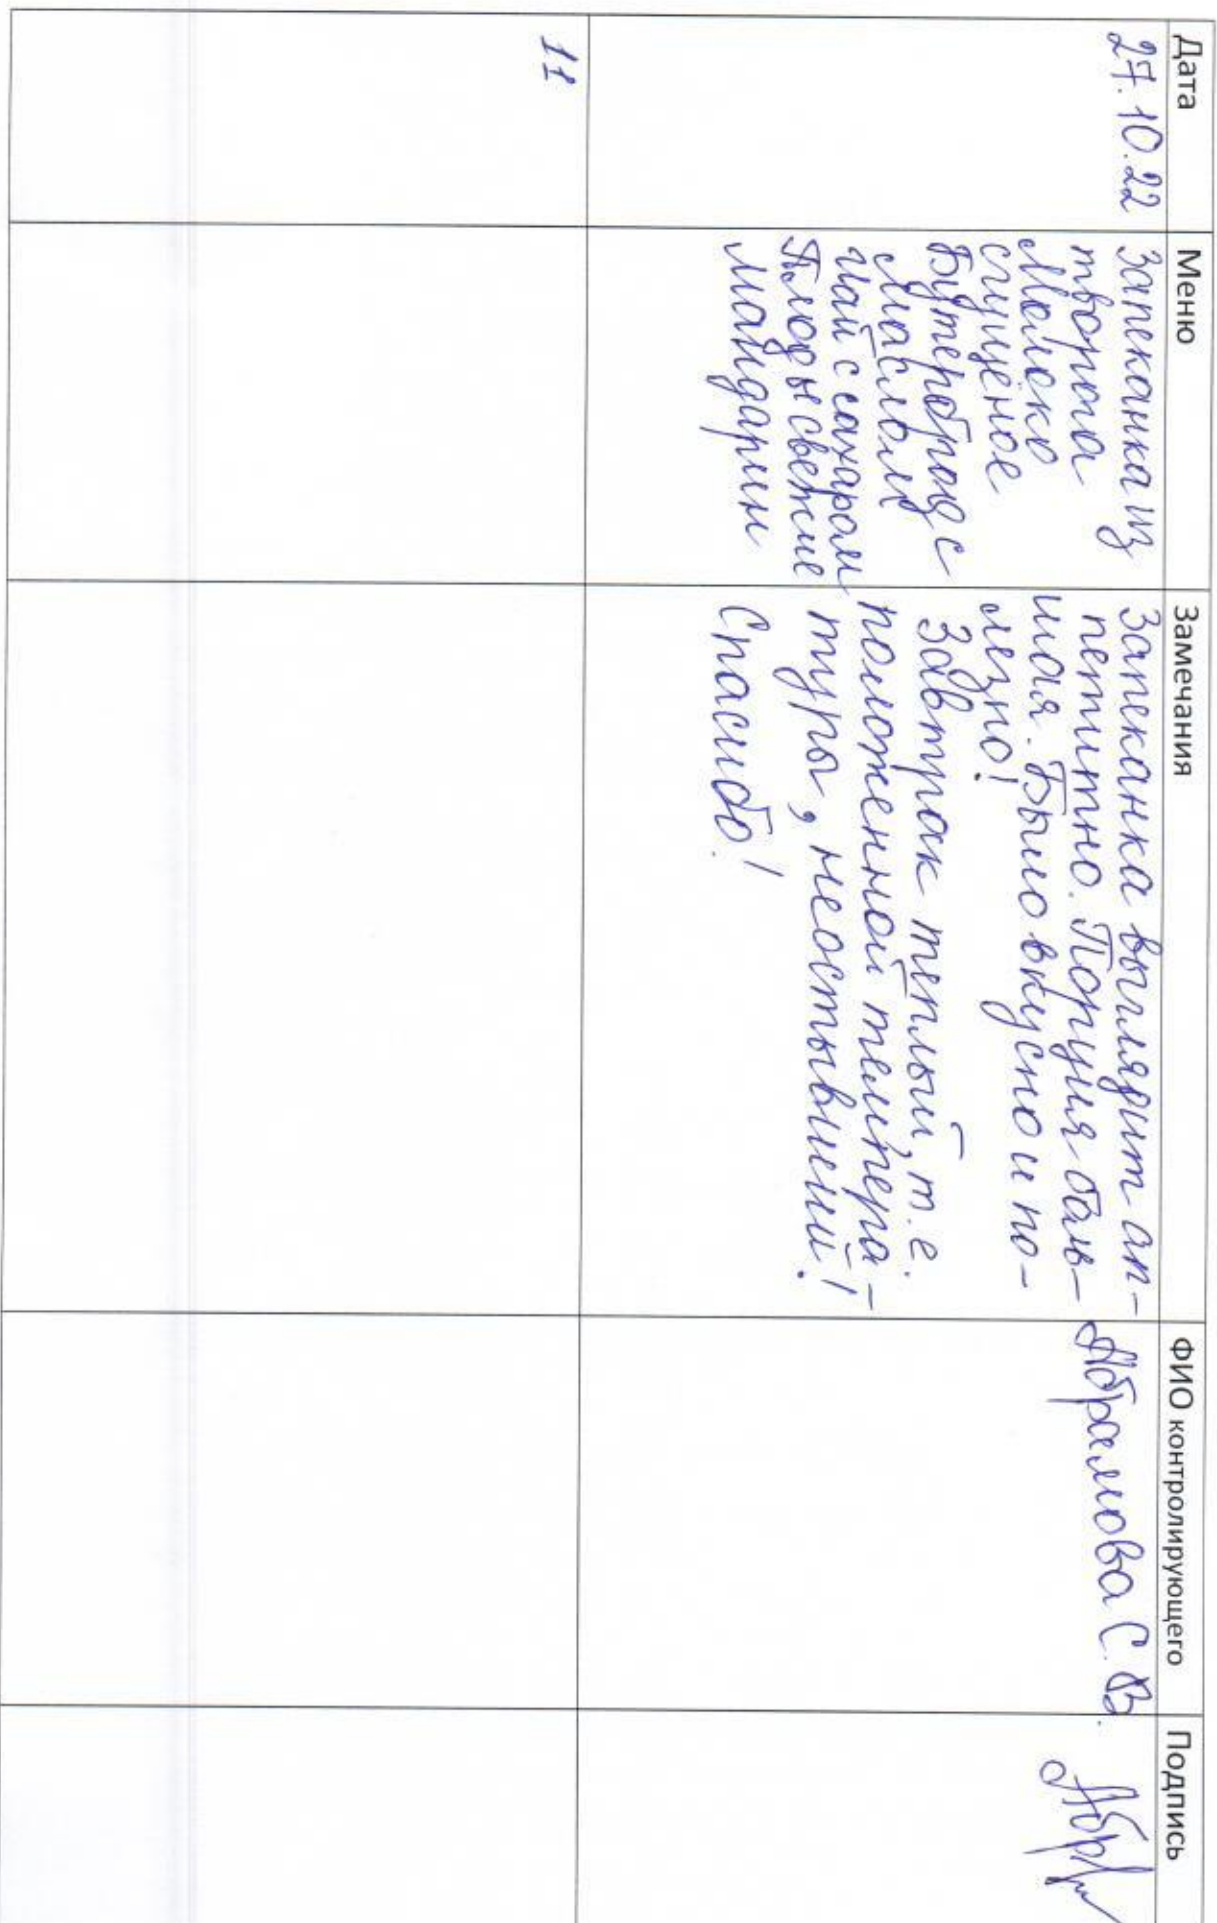 Дата Меню Замечания ФИО контролирующего Подпись
27.10.22
Запеканка из
творога
Молоко
сгущеное
Бутерброд с
маслом
Чай с сахаром
Плоды свежие
мандарин
Запеканка выглядит ап-
петитно. Порция боль-
шая. Было вкусно и по-
лезно!
Завтрак теплый, т.е.
положенной темпера-
туры, неостывший!
Спасибо!
Абрамова С.В.
11